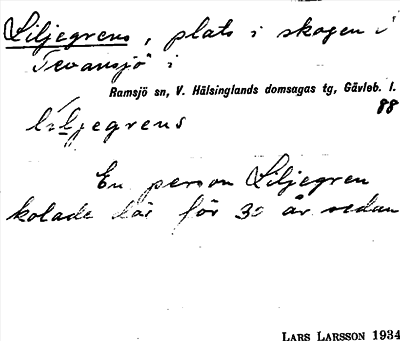 Liljegrens, plats i skogen i
Tevansjö i
Ramsjö sn, V. Hälsinglands domsagas tg, Gävleb. l.
88
líljegrens
En person Liljegren
kolade där för 30 år sedan
LARS LARSSON 1934